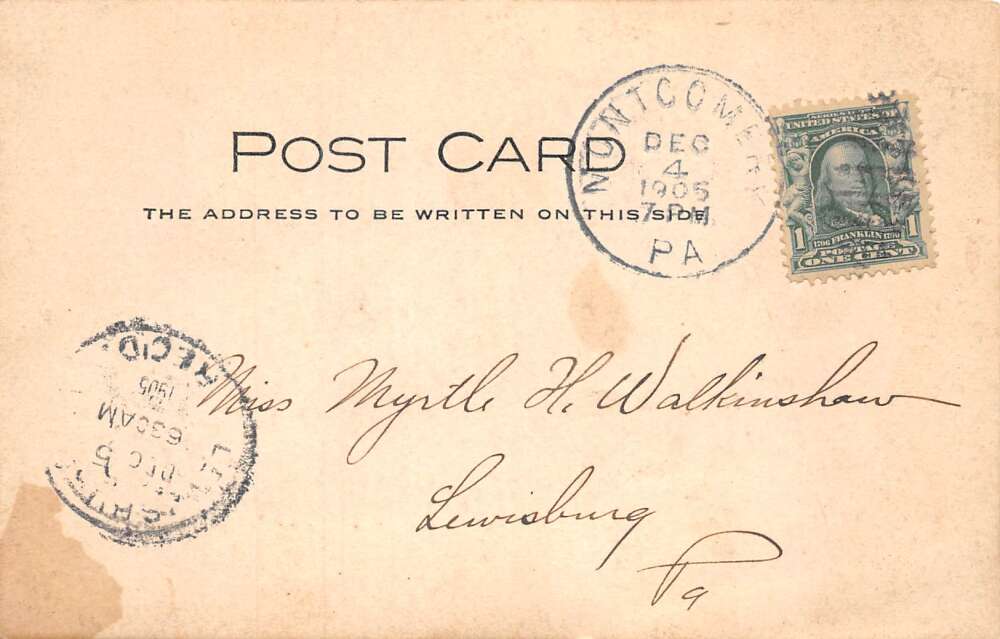 POST CARD
THE ADDRESS TO BE WRITTEN ON THIS SIDE
MONTGOMERY
DEC
4
1905
7 PM
PA
SERIES 1902
UNITED STATES OF
AMERICA
1 1
1706 FRANKLIN 1790
POSTAGE
ONE CENT
REC'D
1905
630 AM
DEC 5
Miss Myrtle H. Walkinshaw
Lewisburg
Pa